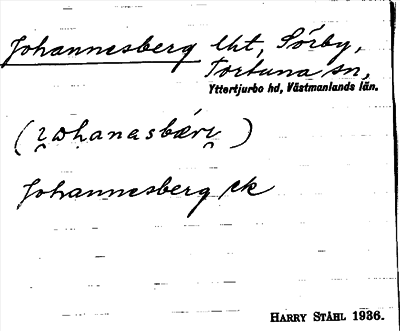 Johannesberg lht, Sörby,
Fortuna sn,
Yttertjurbo hd, Västmanlands län.
Johannesberg ek
HARRY STÅHL 1936.